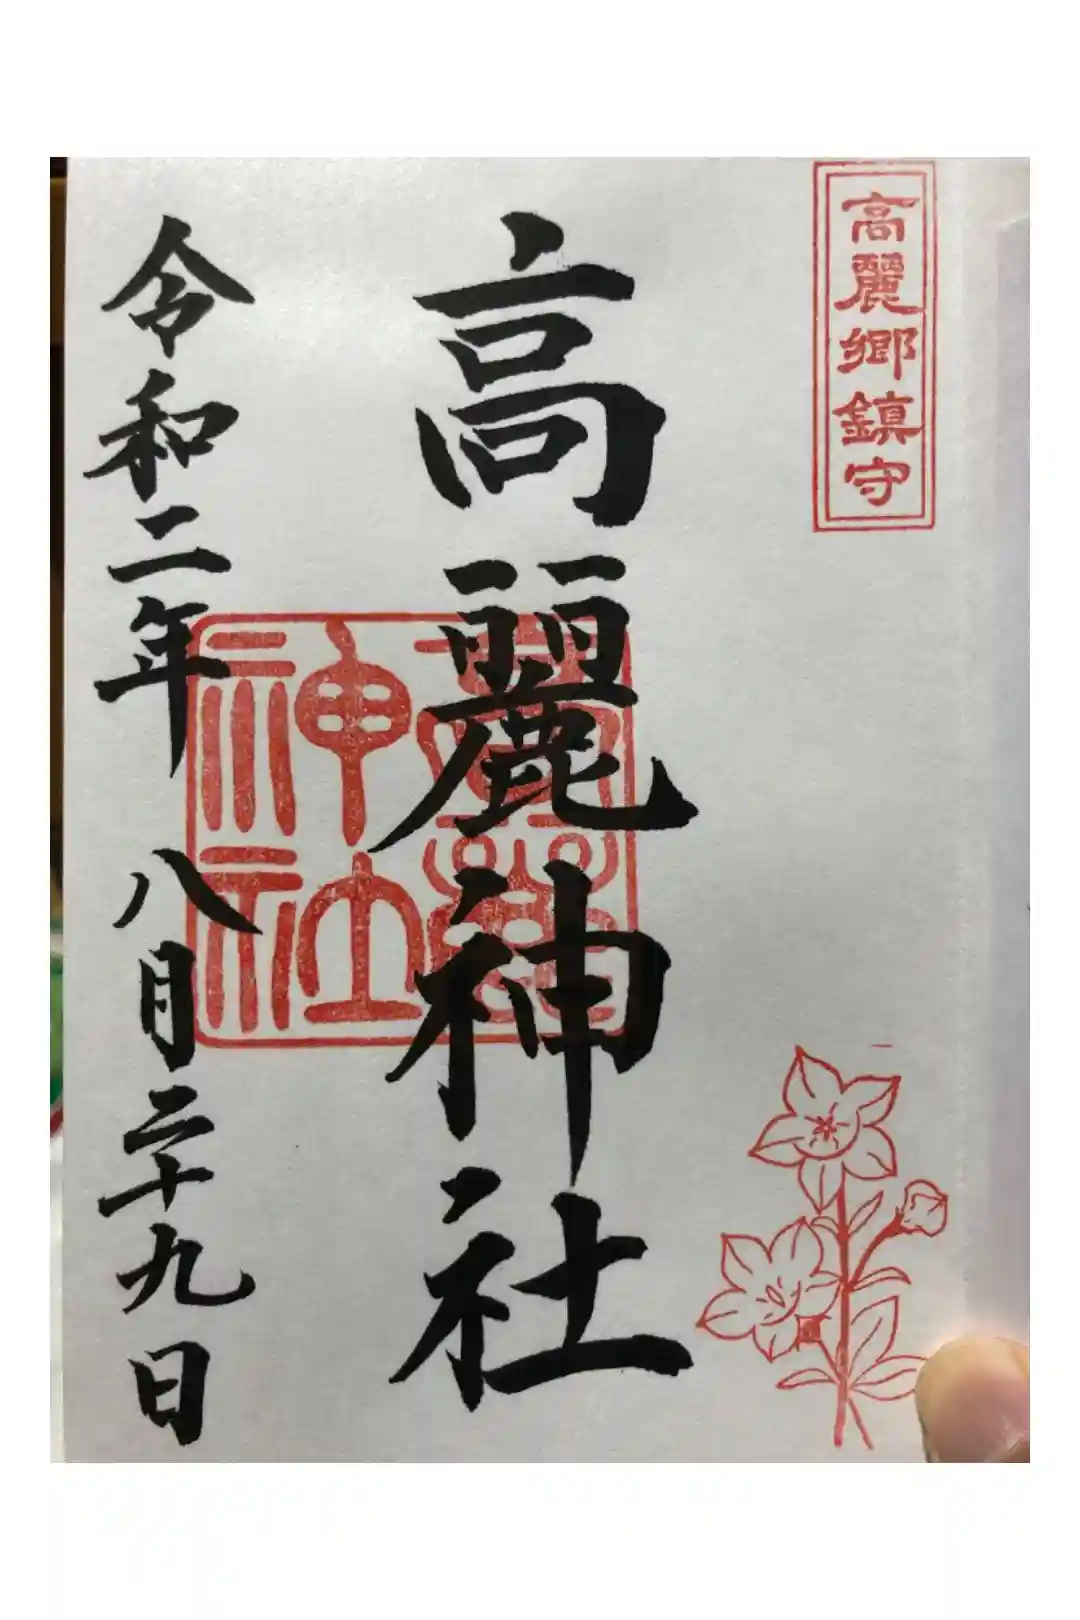 高麗郷鎮守
高麗神社
高麗神社
令和二年八月二十九日